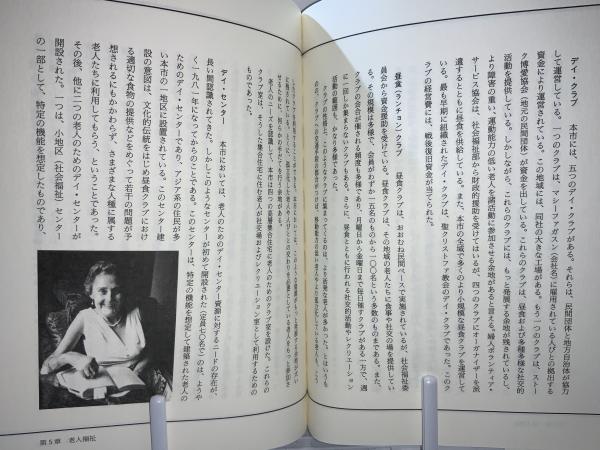 デイ・クラブ　本市には、五つのデイ・クラブがある。それらは、民間団体と地方自治体が協力
して運営している。一つのクラブは、マシーファガスン（会社名）に雇用されている人びとの拠出する
資金により運営されている。この地域には、同社の大きな工場がある。もう一つのクラブは、ストー
ク博愛協会（地元の民間団体）が資金を出している。これらのクラブは、昼食および多種多様な社交的
活動を提供している。しかしながら、これらのクラブには、もっと発展する余地が残されているし、
より障害の重い、運動能力の低い老人を諸活動に参加させる余地があると言える。婦人ボランティア・
サービス協会は、社会福祉部から財政的援助を受けてはいるが、四つのクラブにオーガナイザーを派
遣するとともに昼食を供給している。また、本市の全域で多くのより小規模な昼食クラブを運営して
いる。最も早期に組織されたデイ・クラブは、聖クリストファ教会のデイ・クラブであった。このク
ラブの経営費には、戦後復旧資金が当てられた。
昼食（ランチョン）クラブ　昼食クラブは、おおむね民間ベースで実施されているが、社会福祉委
員会から資金援助を受けている。昼食クラブは、その地域の老人たちに食事や社交の場を提供してい
る。その規模は多様で、会員がわずか一五名のものから一〇〇名という多数のものまである。また、
クラブの会合が催される頻度も多様であり、月曜日から金曜日まで毎日催すクラブがある一方で、週
に一回しか集まらないクラブもある。さらに、昼食とともに行われる社交的活動やレクリエーション
活動の範囲も、かなり多様である。
老人のニーズを認識して、本市は四つの高層集合住宅に老人のためのクラブ室を設けた。これらの
クラブ室は、そうした集合住宅に住む老人が社交場およびレクリエーション室として利用するための
ものであった。
デイ・センター　本市においては、老人のためのデイ・センター資源に対するニードの存在が、
長い間認識されてきた。しかしこのようなセンターが初めて開設された（定員七〇名で）のは、ようや
く一九八一年になってからのことである。このセンターは、特定の機能を想定して建築された老人の
ためのデイ・センターであり、アジア系の住民が多
い本市の一地区に設置されている。このセンター建
設の意図は、文化的伝統をはじめ昼食クラブにおけ
る適切な食物の提供などをめぐって若干の問題が予
想されるにもかかわらず、さまざまな人種に属する
老人たちに利用してもらう、ということであった。
その後、他に二つの老人のためのデイ・センターが
開設された。一つは、小地区（社会福祉）センター
の一部として、特定の機能を想定したものであり、
第5章　老人福祉